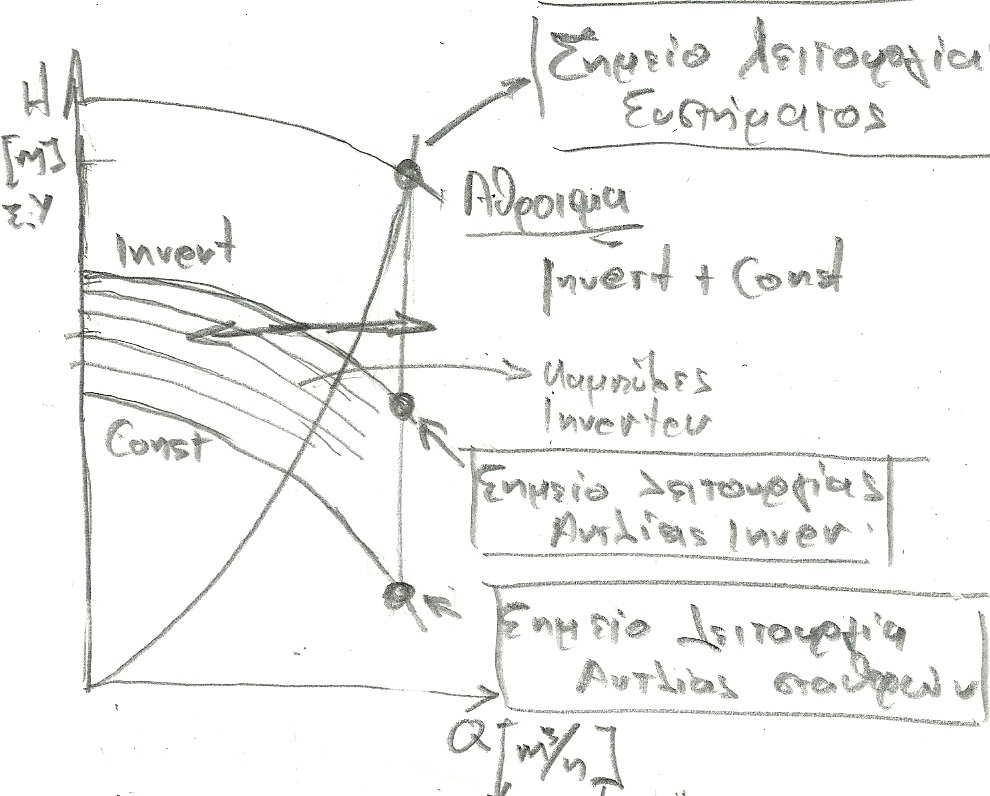 Σημείο λειτουργία
Συστήματος
H
[m]
Σ.Υ
Άθροισμα
Invert + Const
Invert
Καμπύλες
Inverter
Const
Σημείο λειτουργίας
Αντλίας Inver.
Σημείο λειτουργία
Αντλίας σταθερών
Q [m³/h]